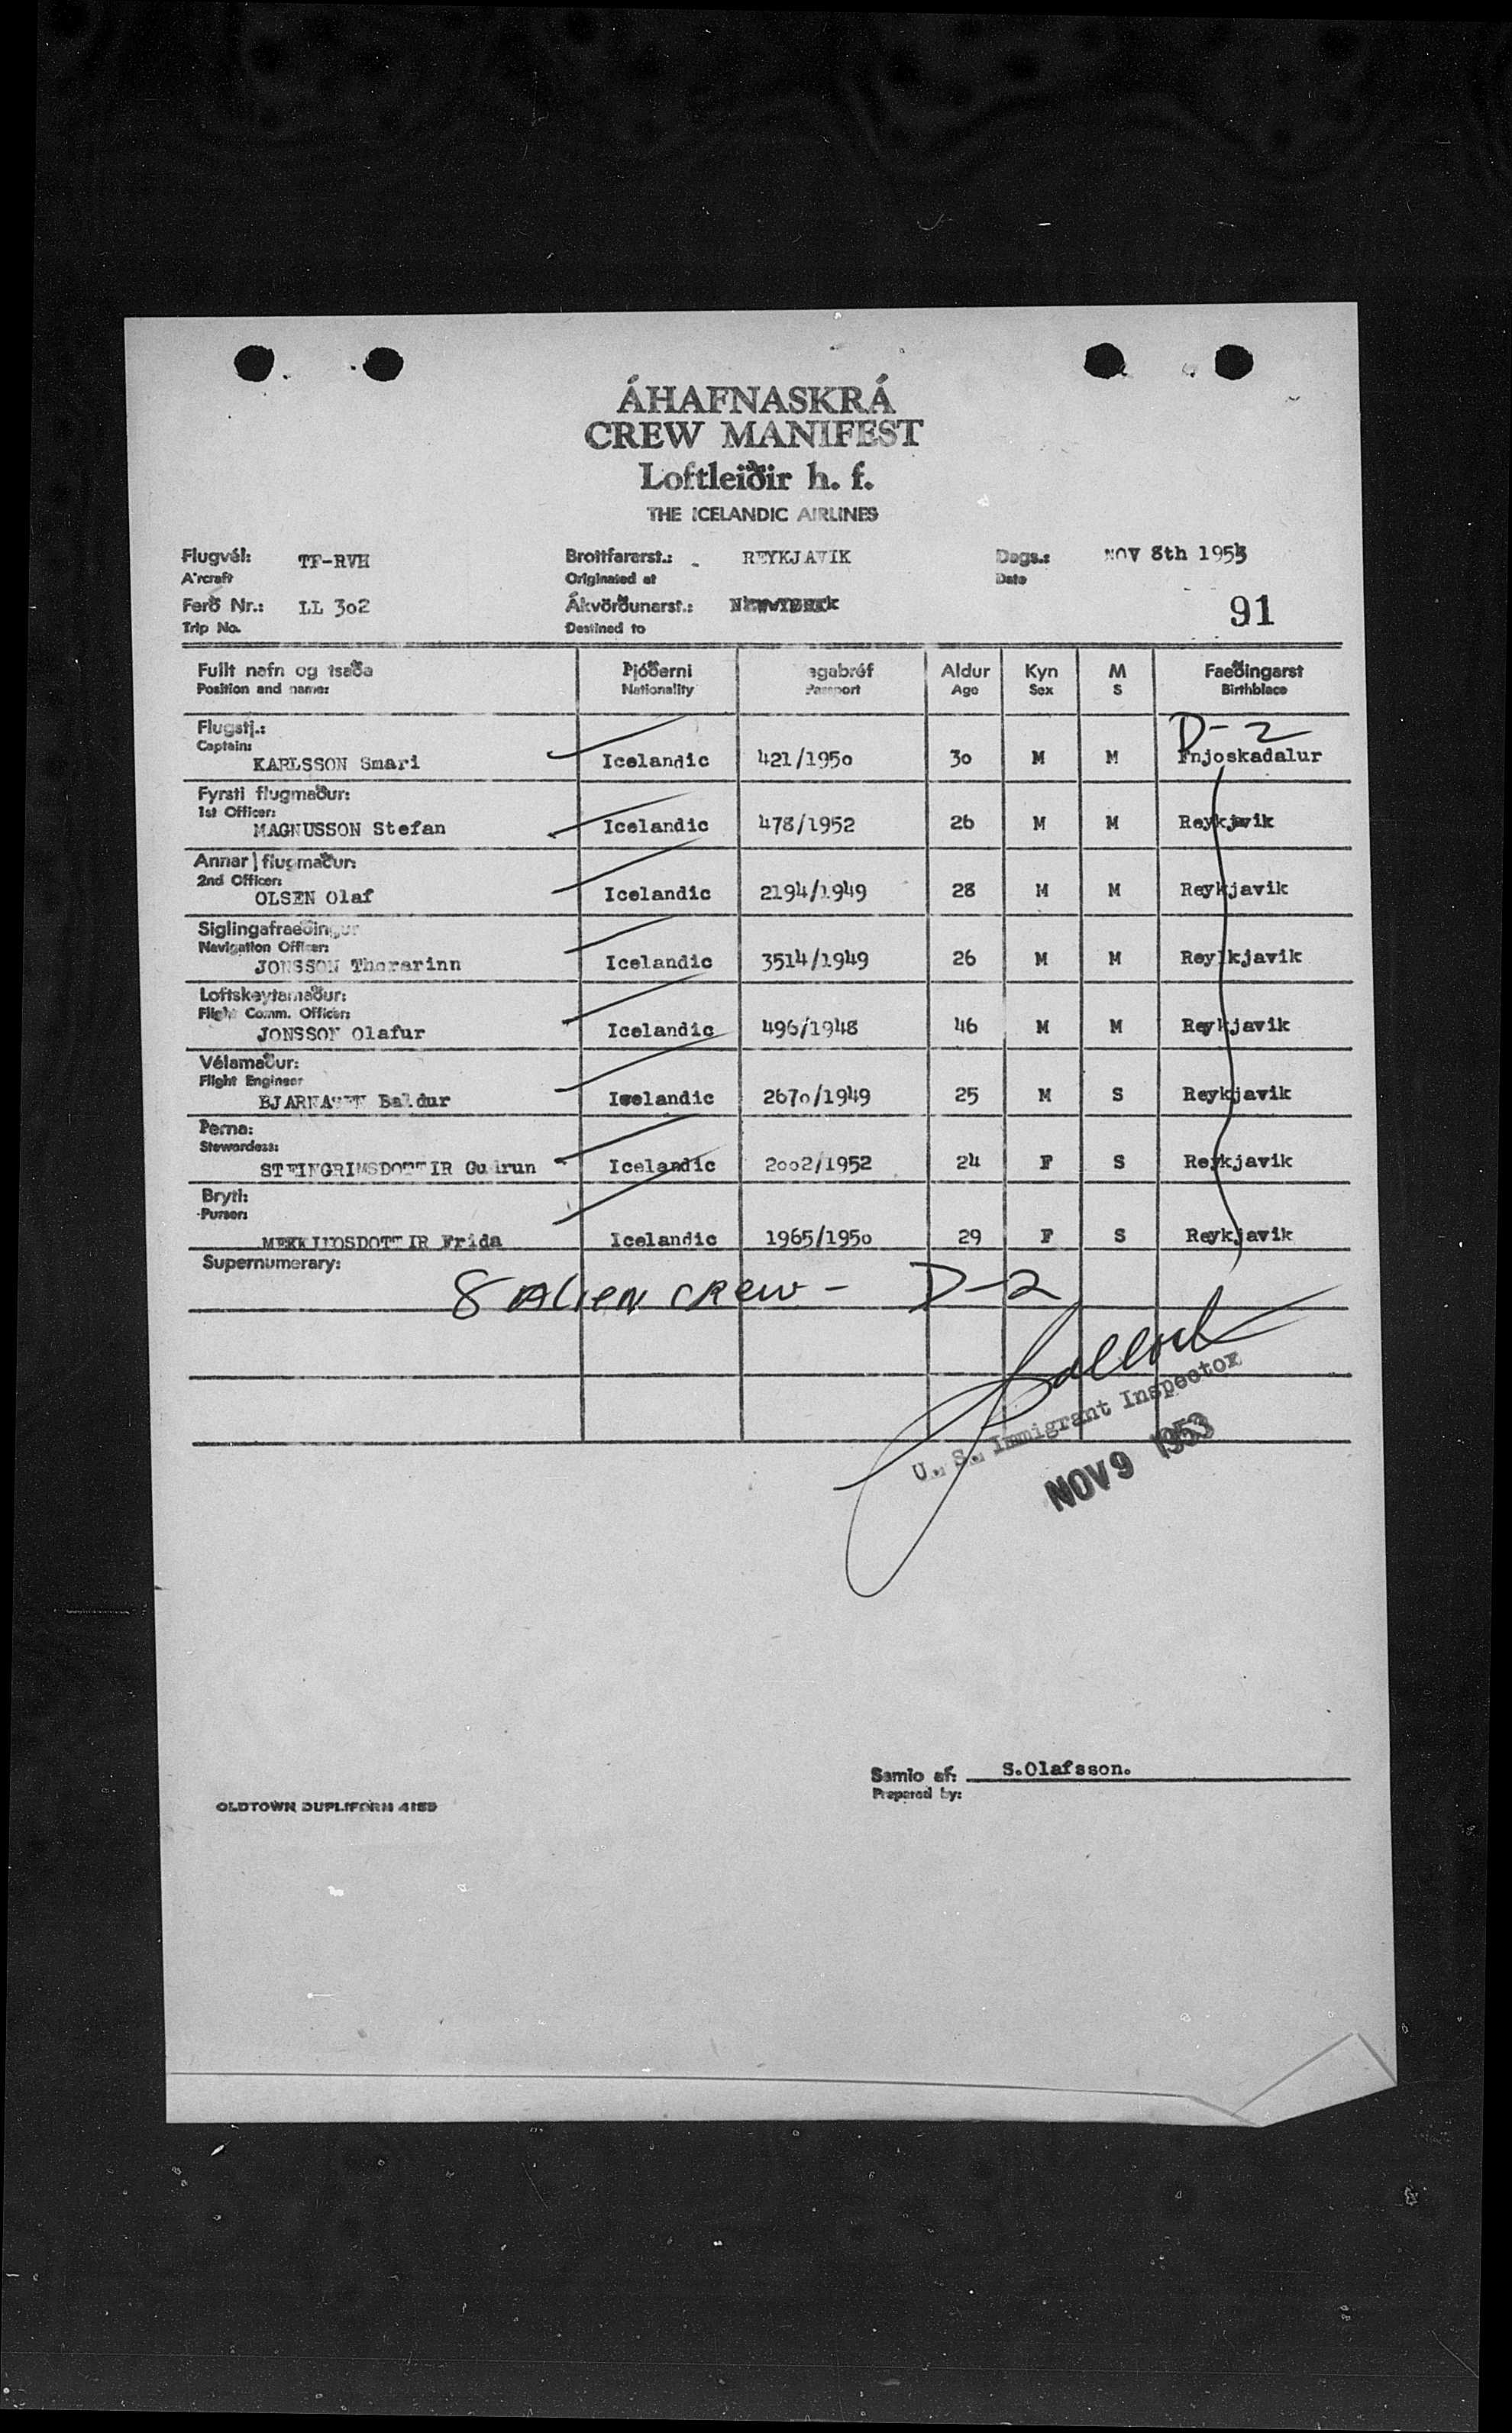 ÁHAFNASKRÁ
CREW MANIFEST
Loftleiðir h. f.
THE ICELANDIC AIRLINES
Flugvél: TF-RVH Brottfararst.: REYKJAVIK Dags.: NOV 8th 1953
Aircraft Originated at Date
Ferð Nr.: LL 302 Ákvörðunarst.: 91
Trip No. Destined to
Fullt nafn og tsaða Þjóðerni Aldur Kyn M Faeðingarst
Position and name: Nationality Passport Age Sex S Birthplace
Flugstj.: D-2
Captain:
KARLSSON Smari Icelandic 421/1950 30 M M Fnjoskadalur
Fyrsti flugmaður:
1st Officer:
MAGNUSSON Stefan Icelandic 478/1952 26 M M Reykjavik
Annar flugmaður:
2nd Officer:
OLSEN Olaf Icelandic 2194/1949 28 M M Reykjavik
Siglingafraeðingur
Navigation Officer:
JONSSON Thorarinn Icelandic 3514/1949 26 M M Reylkjavik
Loftskeytamaður:
Flight Comm. Officer:
JONSSON Olafur Icelandic 496/1948 46 M M Reykjavik
Vélamaður:
Flight Engineer
Baldur Icelandic 2670/1949 25 M S Reykjavik
Þerna:
Stewardess:
STEINGRIMSDOTTIR Gudrun Icelandic 2002/1952 24 F S Reykjavik
Bryti:
Purser:
Frida Icelandic 1965/1950 29 F S Reykjavik
Supernumerary:
8 Alien crew - D-2
U. S. Immigrant Inspector
NOV 9 1953
Samio af: S.Olafsson.
Prepared by:
OLDTOWN DUPLIFORM 4155